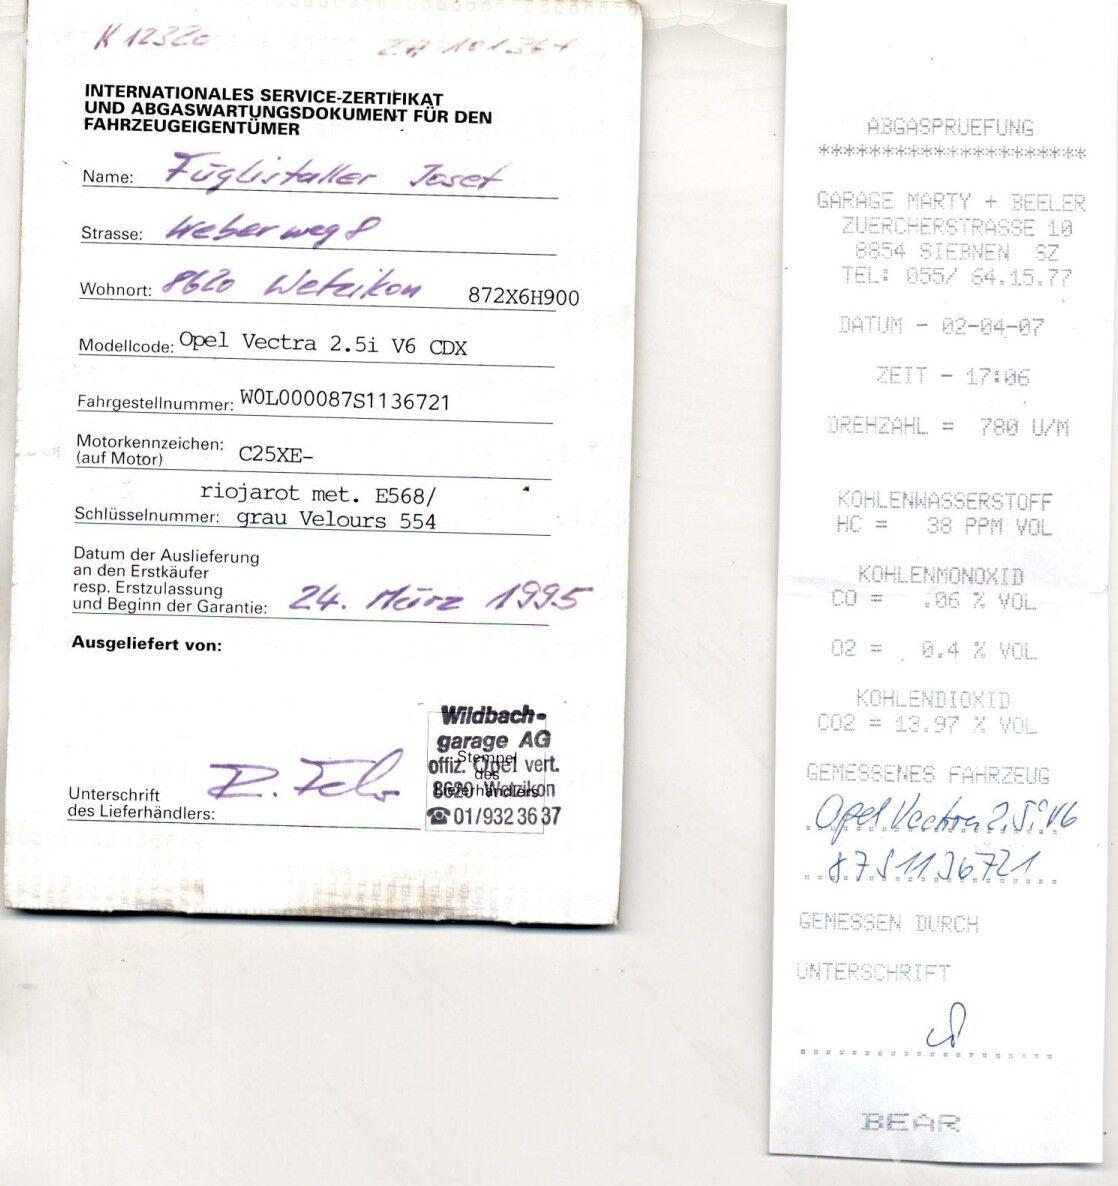 K 12320 ZH 101 361
INTERNATIONALES SERVICE-ZERTIFIKAT
UND ABGASWARTUNGSDOKUMENT FÜR DEN
FAHRZEUGEIGENTÜMER
Name: Füglistaller Josef
Strasse: Weberweg 8
Wohnort: 8620 Wetzikon 872X6H900
Modellcode: Opel Vectra 2.5i V6 CDX
Fahrgestellnummer: W0L000087S1136721
Motorkennzeichen:
(auf Motor) C25XE-
riojarot met. E568/
Schlüsselnummer: grau Velours 554
Datum der Auslieferung
an den Erstkäufer
resp. Erstzulassung
und Beginn der Garantie: 24. März 1995
Ausgeliefert von:
Wildbach-
garage AG
Stempel
offiz. Opel vert.
des
8620 Wetzikon
Lieferhändlers
☎ 01/932 36 37
Unterschrift
des Lieferhändlers:
ABGASPRUEFUNG
*********************
GARAGE MARTY + BEELER
ZUERCHERSTRASSE 10
8854 SIEBNEN SZ
TEL: 055/ 64.15.77
DATUM - 02-04-07
ZEIT - 17:06
DREHZAHL = 780 U/M
KOHLENWASSERSTOFF
HC = 38 PPM VOL
KOHLENMONOXID
CO = .06 % VOL
O2 = 0.4 % VOL
KOHLENDIOXID
CO2 = 13.97 % VOL
GEMESSENES FAHRZEUG
Opel Vectra 2,5i V6
87S1136721
GEMESSEN DURCH
UNTERSCHRIFT
BEAR